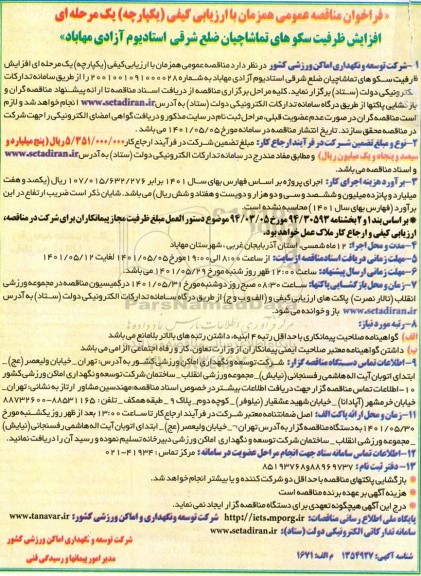 «فراخوان مناقصه عمومی همزمان با ارزیابی کیفی (یکپارچه) یک مرحله ای
افزایش ظرفیت سکو های تماشاچیان ضلع شرقی استادیوم آزادی مهاباد»
۱-شرکت توسعه و نگهداری اماکن ورزشی کشور در نظر دارد مناقصه عمومی همزمان با ارزیابی کیفی (یکپارچه) یک مرحله ای افزایش
ظرفیت سکو های تماشاچیان ضلع شرقی استادیوم آزادی مهاباد به شماره ۲۰۰۱۰۰۱۰۹۱۰۰۰۰۲۸ را از طریق سامانه تدارکات
الکترونیکی دولت (ستاد) برگزار نماید. کلیه مراحل برگزاری مناقصه از دریافت اسناد مناقصه تا ارائه پیشنهاد مناقصه گران و
بازگشایی پاکتها از طریق درگاه سامانه تدارکات الکترونیکی دولت (ستاد) به آدرس www.setadiran.ir انجام خواهد شد و لازم
است مناقصه گران در صورت عدم عضویت قبلی، مراحل ثبت نام در سایت مذکور و دریافت گواهی امضای الکترونیکی را جهت شرکت
در مناقصه محقق سازند. تاریخ انتشار مناقصه در سامانه مورخ ۱۴۰۱/۰۵/۰۵ می باشد.
۲-نوع و مبلغ تضمین شرکت در فرآیند ارجاع کار: مبلغ تضمین شرکت در فرآیند ارجاع کار ۵/۳۵۱/۰۰۰/۰۰۰ ریال (پنج میلیارد و
سیصد و پنجاه و یک میلیون ریال) و مطابق مفاد مندرج در سامانه تدارکات الکترونیکی دولت (ستاد) به آدرس www.setadiran.ir
و اسناد مناقصه می باشد.
۳-برآورد هزینه اجرای کار: اجرای پروژه بر اساس فهارس بهای سال ۱۴۰۱ برابر ۱۰۷/۰۱۵/۶۳۲/۲۷۶ ریال (یکصد و هفت
میلیارد و پانزده میلیون و ششصد و سی و دو هزار و دویست و هفتاد و شش ریال) می باشد. شایان ذکر است ضریب ارتفاع در این
برآورد (فهارس بهای سال ۱۴۰۱) محاسبه نشده است
براساس بند ۱ و ۲ بخشنامه ۹۴/۳۰۵۹۳ مورخ ۹۴/۰۳/۰۵ موضوع دستورالعمل مبلغ ظرفیت مجاز پیمانکاران برای شرکت در مناقصه،
ارزیابی کیفی و ارجاع کار ملاک عمل خواهد بود.
۴-مدت و محل اجرا: ۱۲ ماه شمسی، استان آذربایجان غربی، شهرستان مهاباد
۵-مهلت زمانی دریافت اسناد مناقصه از سایت: از ساعت ۸:۰۰ الی ۱۹:۰۰ مورخ ۱۴۰۱/۰۵/۰۵ لغایت ۱۴۰۱/۰۵/۱۲
۶-مهلت زمانی ارسال پیشنهاد: ساعت ۱۲:۰۰ ظهر روز شنبه مورخ ۱۴۰۱/۰۵/۲۹ می باشد.
۷-زمان و محل بازگشایی پاکتها: ساعت ۰۸:۳۰ صبح روز دوشنبه مورخ ۱۴۰۱/۰۵/۳۱ در محل کمیسیون مناقصه در مجموعه ورزشی
انقلاب (تالار نصرت) پاکت های ارزیابی کیفی و (الف و ب و ج) از طریق درگاه سامانه تدارکات الکترونیکی دولت (ستاد) به آدرس
www.setadiran.ir باز و خوانده می شود.
۸-رتبه مورد نیاز:
الف) گواهینامه صلاحیت پیمانکاری با حداقل رتبه ۴ ابنیه، داشتن رتبه های بالاتر بلامانع می باشد
ب) داشتن گواهینامه معتبر صلاحیت ایمنی پیمانکاران از وزارت تعاون، کار و رفاه اجتماعی الزامی می باشد
۹-اطلاعات تماس دستگاه مناقصه گزار: شرکت توسعه و نگهداری اماکن ورزشی کشور به آدرس: تهران_ خیابان ولیعصر (عج)_
ابتدای اتوبان آیت اله هاشمی رفسنجانی (نیایش)_ مجموعه ورزشی انقلاب_ ساختمان شرکت توسعه و نگهداری اماکن ورزشی کشور
۱۰-اطلاعات تماس مناقصه گزار جهت دریافت اطلاعات بیشتر در خصوص اسناد مناقصه: مهندسین مشاور ارتاز به نشانی: تهران_
خیابان خرمشهر (آپادانا)_ خیابان شهید عشقیار (نیلوفر)_ کوچه دوم_ پلاک ۹_ طبقه همکف_ تلفن: ۸۸۵۳۱۱۶۵-۸۸۷۳۳۶۰۰
۱۱-زمان و محل ارائه پاکت الف: اصل ضمانتنامه معتبر شرکت در فرآیند ارجاع کار تا ساعت ۱۳:۰۰ بعد از ظهر روز یکشنبه مورخ
۱۴۰۱/۰۵/۳۰ به دستگاه مناقصه گزار به آدرس تهران_ خیابان ولیعصر (عج)_ ابتدای اتوبان آیت اله هاشمی رفسنجانی (نیایش)
_مجموعه ورزشی انقلاب_ ساختمان شرکت توسعه و نگهداری اماکن ورزشی دبیرخانه تسلیم نموده و رسید آن را دریافت نمائید.
۱۲-اطلاعات تماس سامانه ستاد جهت انجام مراحل عضویت در سامانه: مرکز تماس: ۴۱۹۳۴-۰۲۱
۱۳-دفتر ثبت نام: ۸۸۹۶۹۷۳۷ و ۸۵۱۹۳۷۶۸
بازگشایی پاکتهای مناقصه با حداقل دو شرکت کننده و یا بیشتر انجام خواهد شد.
هزینه آگهی بر عهده برنده مناقصه است.
درج این آگهی هیچگونه تعهدی برای دستگاه مناقصه گزار ایجاد نمی نماید.
پایگاه ملی اطلاع رسانی مناقصات: http://iets.mporg.ir شرکت توسعه و نگهداری و اماکن ورزشی کشور: www.tanavar.ir
سامانه تدارکاتی الکترونیکی دولت (ستاد): www.setadiran.ir
شرکت توسعه و نگهداری اماکن ورزشی کشور
مدیر امور پیمانها و رسیدگی فنی
شناسه آگهی: ۱۳۵۴۹۲۷ م الف: ۱۶۷۱
ParsNamadData